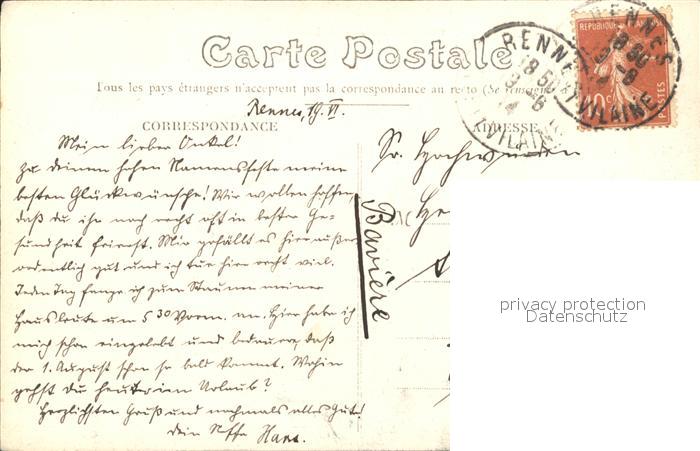 Carte Postale
Tous les pays étrangers n'acceptent pas la correspondance au recto (Se renseigner
Rennes, 19. VI.
CORRESPONDANCE
ADRESSE
RENNES
18 50
ILLE-ET-VILAINE
RENNES
VILAINE
REPUBLIQUE
POSTES
10 c
Mein lieber Onkel!
Zu deinem hohen Namensfeste meine
besten Glückwünsche! Wir wollen hoffen,
daß du ihn noch recht oft in bester Ge-
sundheit feierst. Mir gefällt es hier außer-
ordentlich gut und ich tue hier recht viel.
Jeden Tag fange ich zum Staunen meiner
Hausleute um 5 30 Vorm. an. Hier habe ich
mich schon eingelebt und bedaure, daß
der 1. August schon so bald kommt. Wohin
gehst du heuer im Urlaub?
Herzlichsten Gruß und nochmals alles Gute!
Dein Neffe Hans.
Sr. Hochwürden
Bavière
privacy protection
Datenschutz